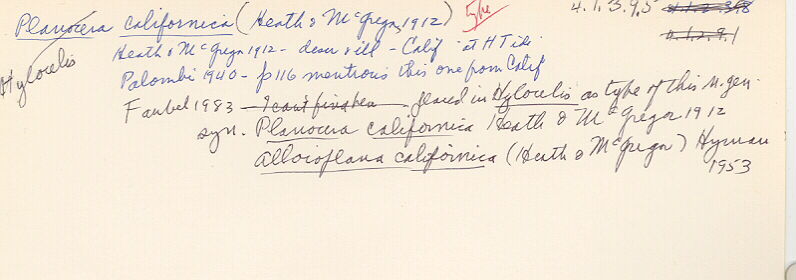 Planocera californica (Heath & McGregor, 1912) Type 4.1.3.9.5 4.1.2.3.8
4.1.2.9.1
Hylocelis
Heath & McGregor 1912 - descr & ill - Calif at H Tide
Palombi 1940 - p116 mentions this one from Calif
Faubel 1983 - I can't find her placed in Hylocelis as type of this n. gen.
syn. Planocera californica Heath & McGregor 1912
Alloioplana californica (Heath & McGregor) Hyman
1953